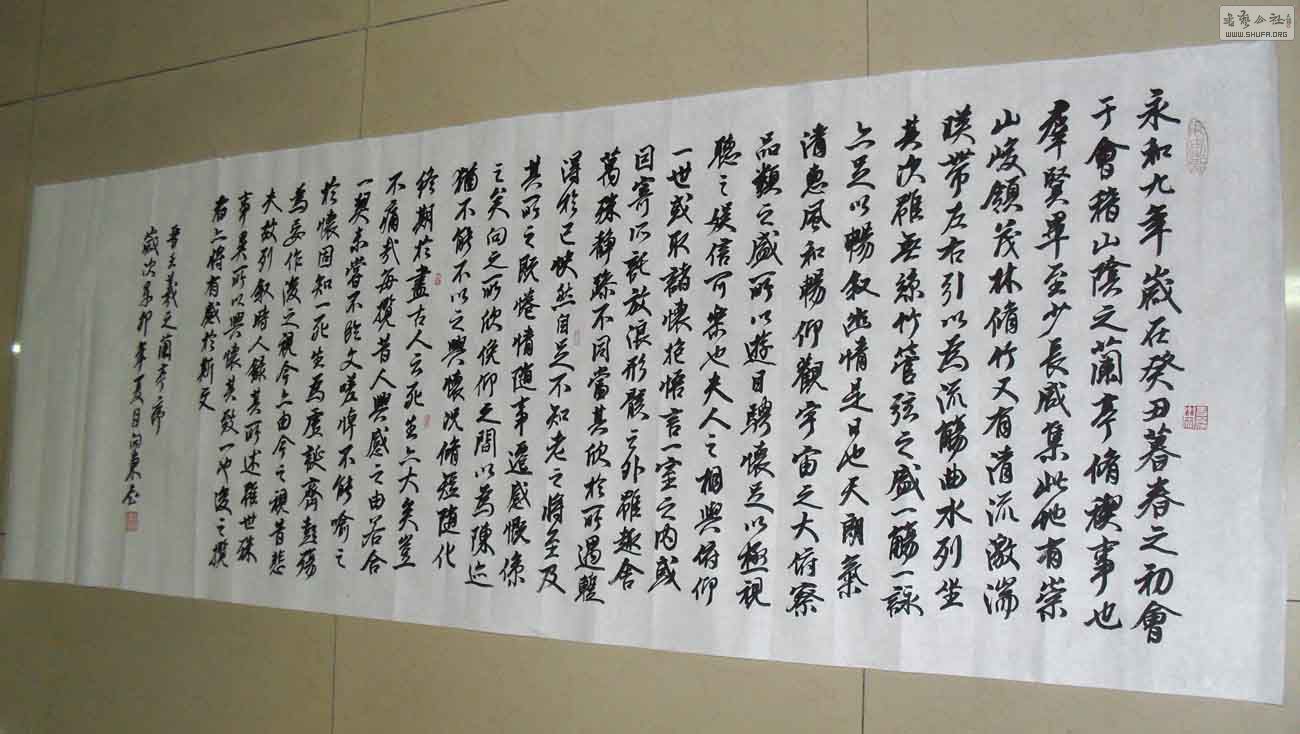 永和九年歲在癸丑暮春之初會
于會稽山陰之蘭亭脩禊事也
羣賢畢至少長咸集此地有崇
山峻領茂林脩竹又有清流激湍
暎帶左右引以為流觴曲水列坐
其次雖無絲竹管弦之盛一觴一詠
亦足以暢敘幽情是日也天朗氣
清惠風和暢仰觀宇宙之大俯察
品類之盛所以遊目騁懷足以極視
聽之娱信可樂也夫人之相與俯仰
一世或取諸懷抱悟言一室之內或
因寄所託放浪形骸之外雖趣舍
萬殊靜躁不同當其欣於所遇暫
得於己快然自足不知老之將至及
其所之既惓情隨事遷感慨係
之矣向之所欣俛仰之間以為陳迹
猶不能不以之興懷況脩短隨化
終期於盡古人云死生亦大矣豈
不痛哉每攬昔人興感之由若合
一契未嘗不臨文嗟悼不能喻之
於懷固知一死生為虛誕齊彭殤
為妄作後之視今亦由今之視昔悲
夫故列敘時人錄其所述雖世殊
事異所以興懷其致一也後之攬
者亦將有感於斯文
晉王羲之蘭亭序
歲次辛卯年夏日向東書
書藝公社
WWW.SHUFA.ORG